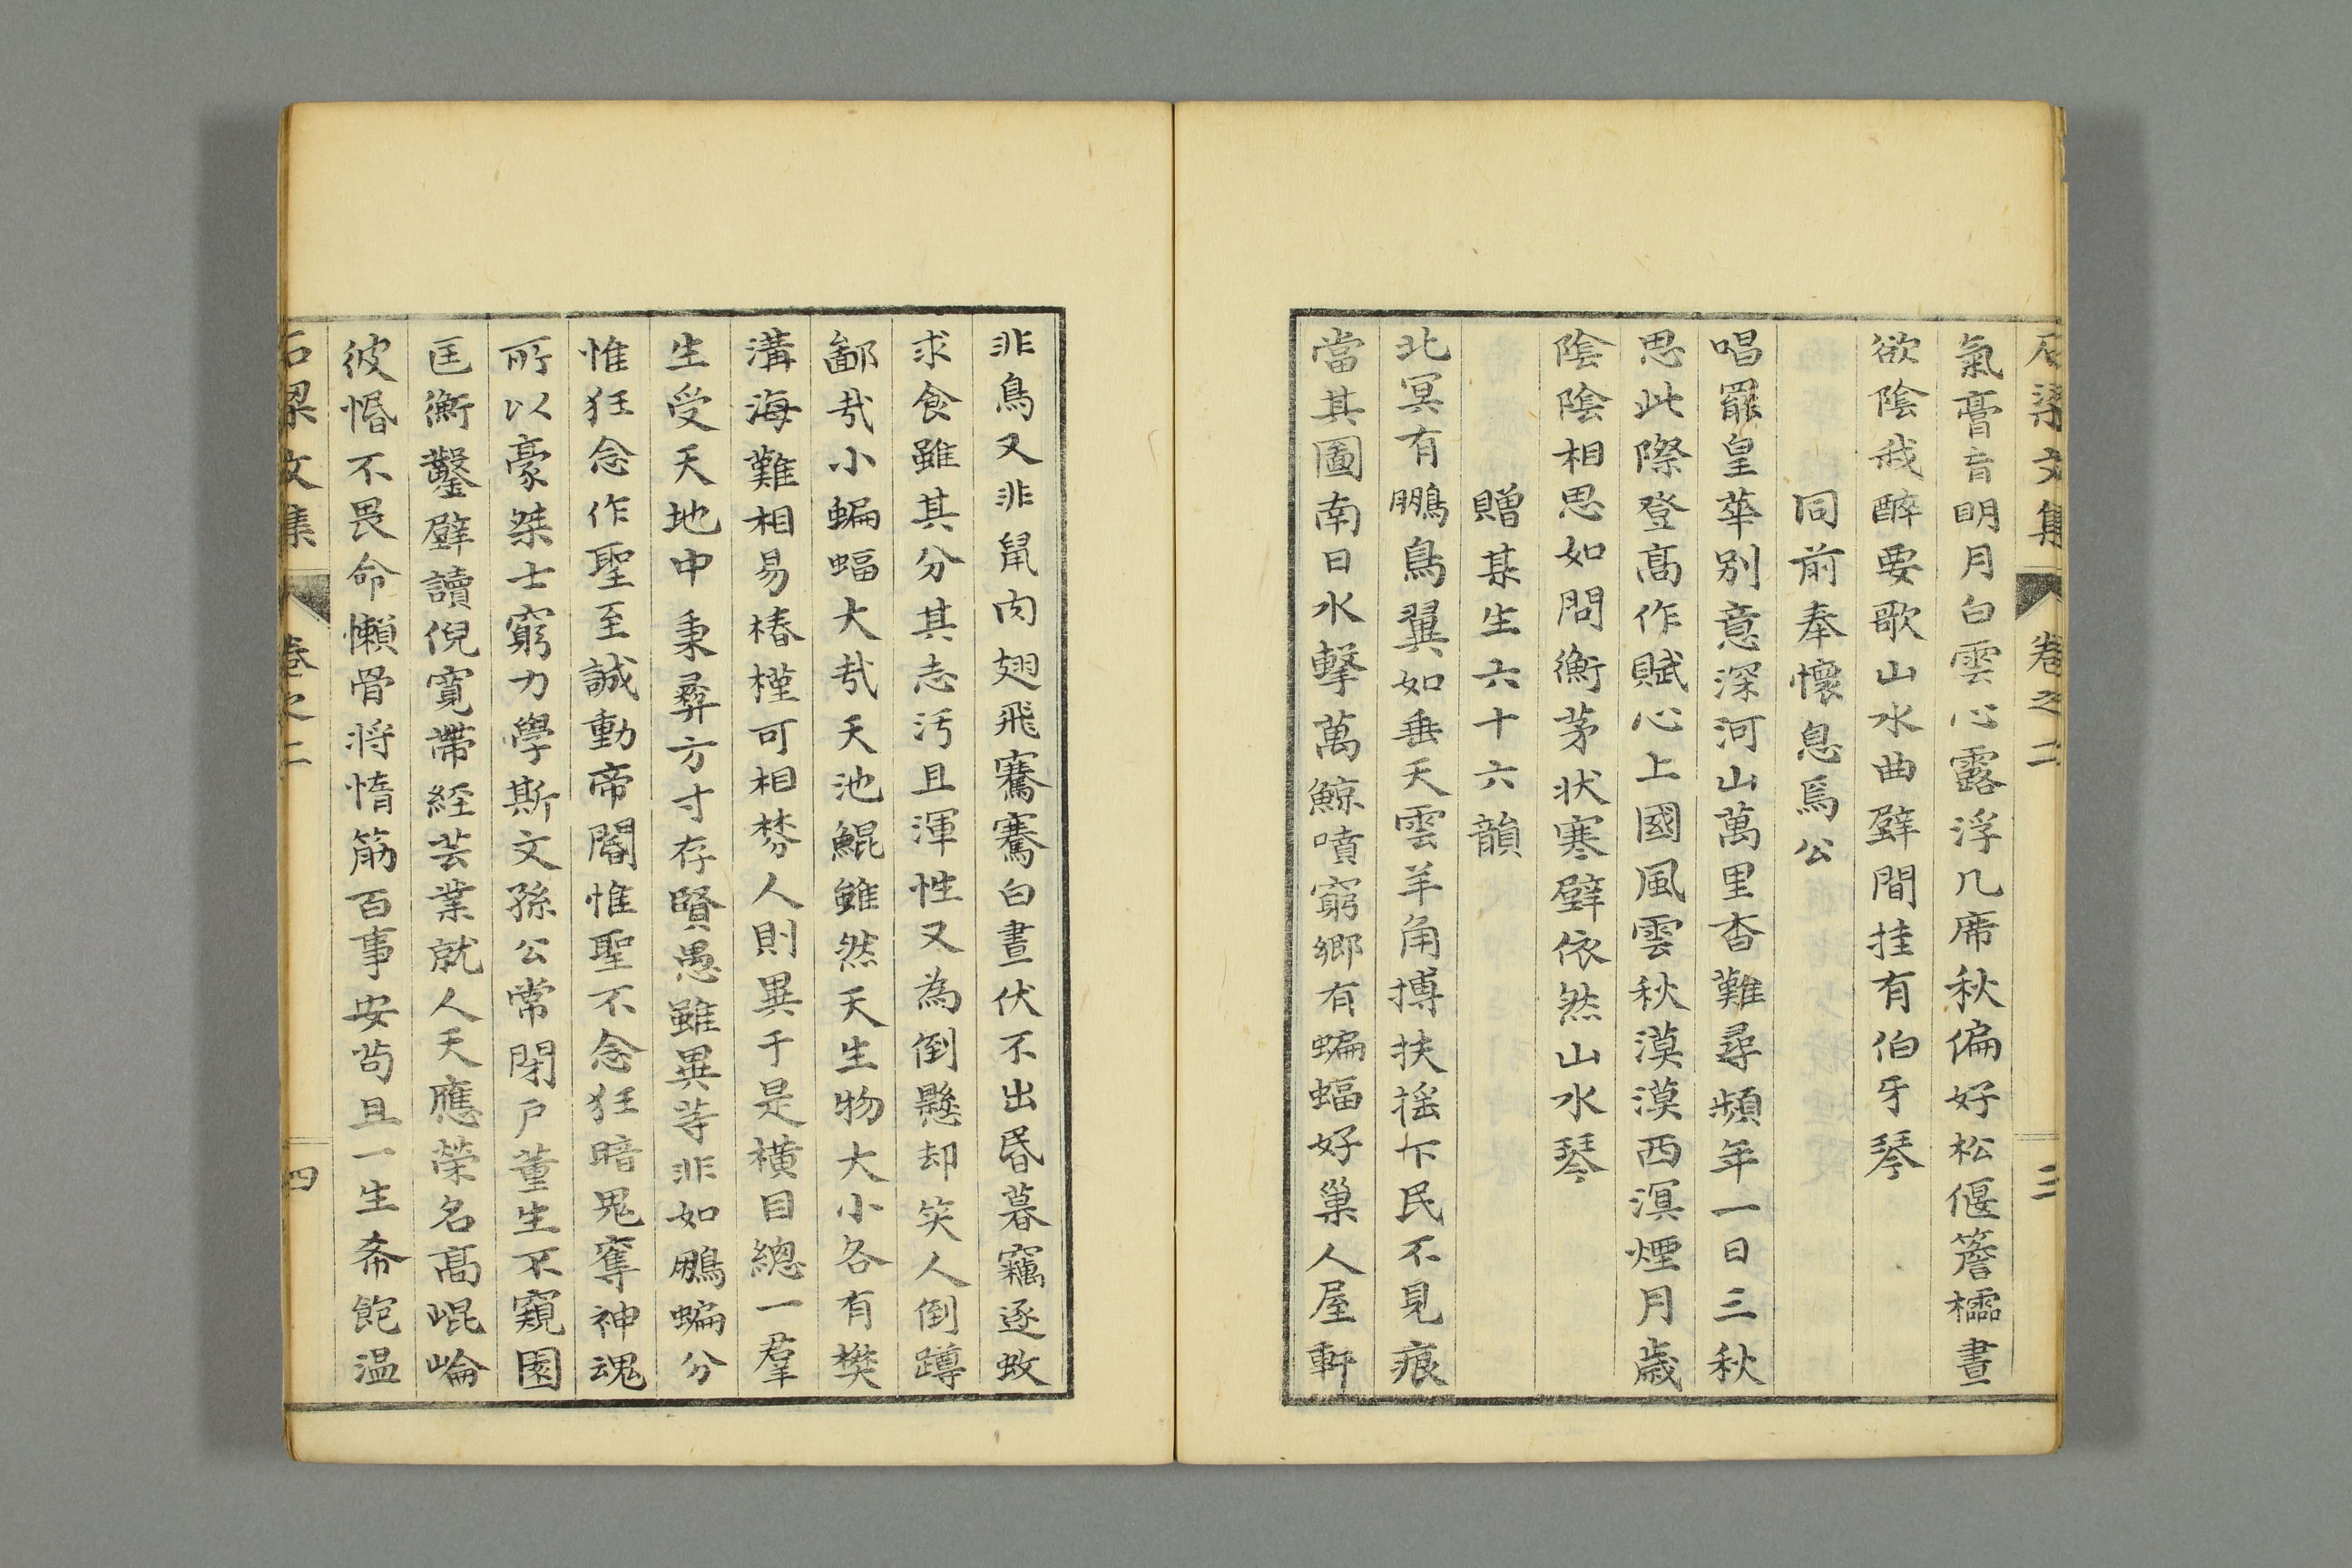 石梁文集 卷之二 三
氣膏肓明月白雲心露浮几席秋偏好松偃簷櫺晝
欲陰我醉要歌山水曲壁間挂有伯牙琴
同前奉懷息焉公
唱罷皇華別意深河山萬里杳難尋頻年一日三秋
思此際登高作賦心上國風雲秋漠漠西溟煙月歲
陰陰相思如問衡茅狀寒壁依然山水琴
贈某生六十六韻
北冥有鵬鳥翼如垂天雲羊角搏扶搖下民不見痕
當其圖南日水擊萬鯨噴窮鄉有蝙蝠好巢人屋軒
非鳥又非鼠肉翅飛騫騫白晝伏不出昏暮竊逐蚊
求食雖其分其志汚且渾性又為倒懸却笑人倒蹲
鄙哉小蝙蝠大哉天池鯤雖然天生物大小各有樊
溝海難相易椿槿可相棼人則異于是橫目總一羣
生受天地中秉彛方寸存賢愚雖異等非如鵬蝙分
惟狂念作聖至誠動帝閽惟聖不念狂暗鬼奪神魂
所以豪桀士窮力學斯文孫公常閉戶董生不窺園
匡衡鑿壁讀倪寬帶経芸業就人天應榮名高崐崘
彼惛不畏命懶骨將惰筋百事安苟且一生希飽温
石梁文集 卷之二 四